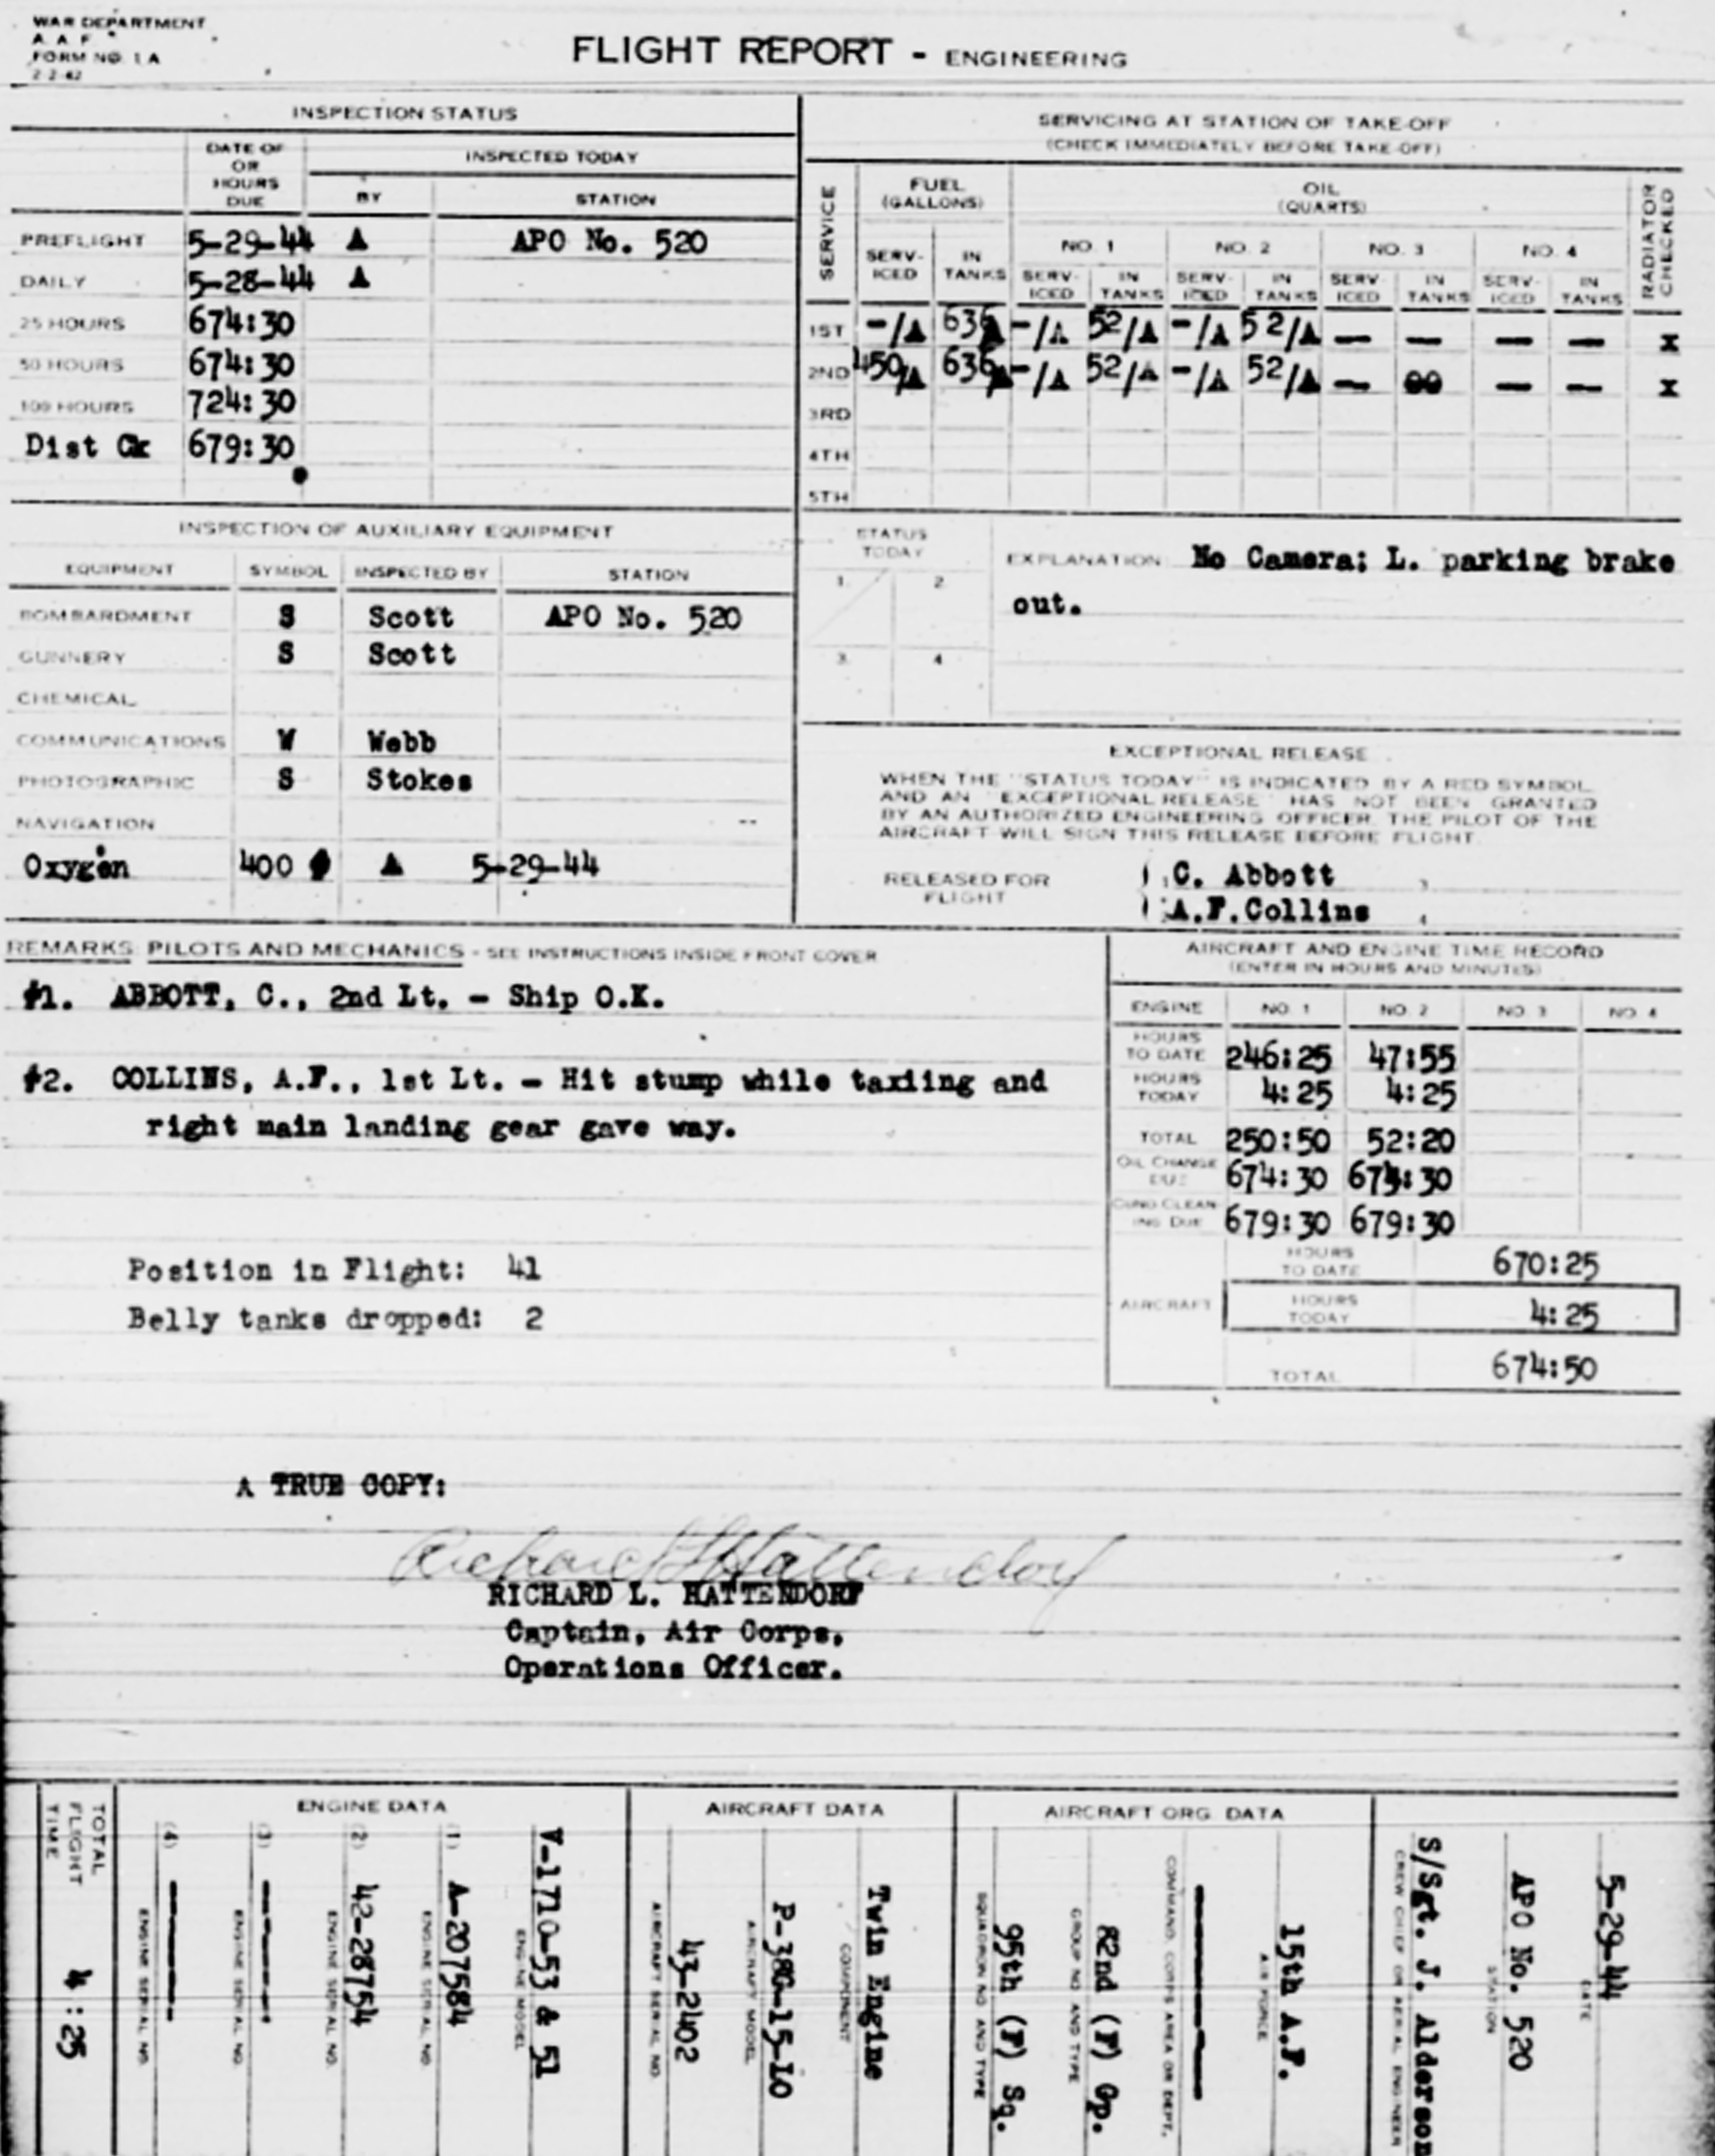 WAR DEPARTMENT
A. A. F.
FORM NO. 1 A
2-2-42
FLIGHT REPORT - ENGINEERING
INSPECTION STATUS
DATE OF OR HOURS DUE
INSPECTED TODAY
BY STATION
PREFLIGHT 5-29-44 ▲ APO No. 520
DAILY 5-28-44 ▲
25 HOURS 674:30
50 HOURS 674:30
100 HOURS 724:30
Dist Ck 679:30
SERVICING AT STATION OF TAKE-OFF
(CHECK IMMEDIATELY BEFORE TAKE-OFF)
SERVICE
FUEL (GALLONS)
OIL (QUARTS)
RADIATOR CHECKED
NO. 1 NO. 2 NO. 3 NO. 4
SERV-ICED IN TANKS SERV-ICED IN TANKS SERV-ICED IN TANKS SERV-ICED IN TANKS SERV-ICED IN TANKS
1ST -/▲ 636▲ -/▲ 52/▲ -/▲ 52/▲ — — — — X
2ND 450/▲ 636▲ -/▲ 52/▲ -/▲ 52/▲ — — — X
3RD
4TH
5TH
INSPECTION OF AUXILIARY EQUIPMENT
EQUIPMENT SYMBOL INSPECTED BY STATION
BOMBARDMENT S Scott APO No. 520
GUNNERY S Scott
CHEMICAL
COMMUNICATIONS W Webb
PHOTOGRAPHIC S Stokes
NAVIGATION --
Oxygen 400 ▲ 5-29-44
STATUS TODAY
1. 2.
3. 4
EXPLANATION No Camera; L. parking brake
out.
EXCEPTIONAL RELEASE
WHEN THE "STATUS TODAY" IS INDICATED BY A RED SYMBOL
AND AN "EXCEPTIONAL RELEASE" HAS NOT BEEN GRANTED
BY AN AUTHORIZED ENGINEERING OFFICER, THE PILOT OF THE
AIRCRAFT WILL SIGN THIS RELEASE BEFORE FLIGHT.
RELEASED FOR FLIGHT
C. Abbott
A.F.Collins
REMARKS: PILOTS AND MECHANICS - SEE INSTRUCTIONS INSIDE FRONT COVER
#1. ABBOTT, C., 2nd Lt. - Ship O.K.
#2. COLLINS, A.F., 1st Lt. - Hit stump while taxiing and
right main landing gear gave way.
Position in Flight: 41
Belly tanks dropped: 2
AIRCRAFT AND ENGINE TIME RECORD
(ENTER IN HOURS AND MINUTES)
ENGINE NO. 1 NO. 2 NO. 3 NO. 4
HOURS TO DATE 246:25 47:55
HOURS TODAY 4:25 4:25
TOTAL 250:50 52:20
OIL CHANGE DUE 674:30 674:30
CUNO CLEAN-ING DUE 679:30 679:30
AIRCRAFT
HOURS TO DATE 670:25
HOURS TODAY 4:25
TOTAL 674:50
A TRUE COPY:
Richard L Hattendorf
RICHARD L. HATTENDORF
Captain, Air Corps,
Operations Officer.
TOTAL FLIGHT TIME 4:25
ENGINE DATA
(4) ENGINE SERIAL NO.
(3) ENGINE SERIAL NO.
(2) 42-28754 ENGINE SERIAL NO.
(1) A-207584 ENGINE SERIAL NO.
V-1710-53 & 51 ENGINE MODEL
AIRCRAFT DATA
43-2402 AIRCRAFT SERIAL NO.
P-38G-15-LO AIRCRAFT MODEL
Twin Engine COMPONENT
AIRCRAFT ORG. DATA
95th (F) Sq. SQUADRON NO. AND TYPE
82nd (F) Gp. GROUP NO. AND TYPE
COMMAND, CORPS AREA OR DEPT.
15th A.F. AIR FORCE
S/Sgt. J. Alderson
CREW CHIEF OR AERIAL ENGINEER
APO No. 520 STATION
5-29-44 DATE